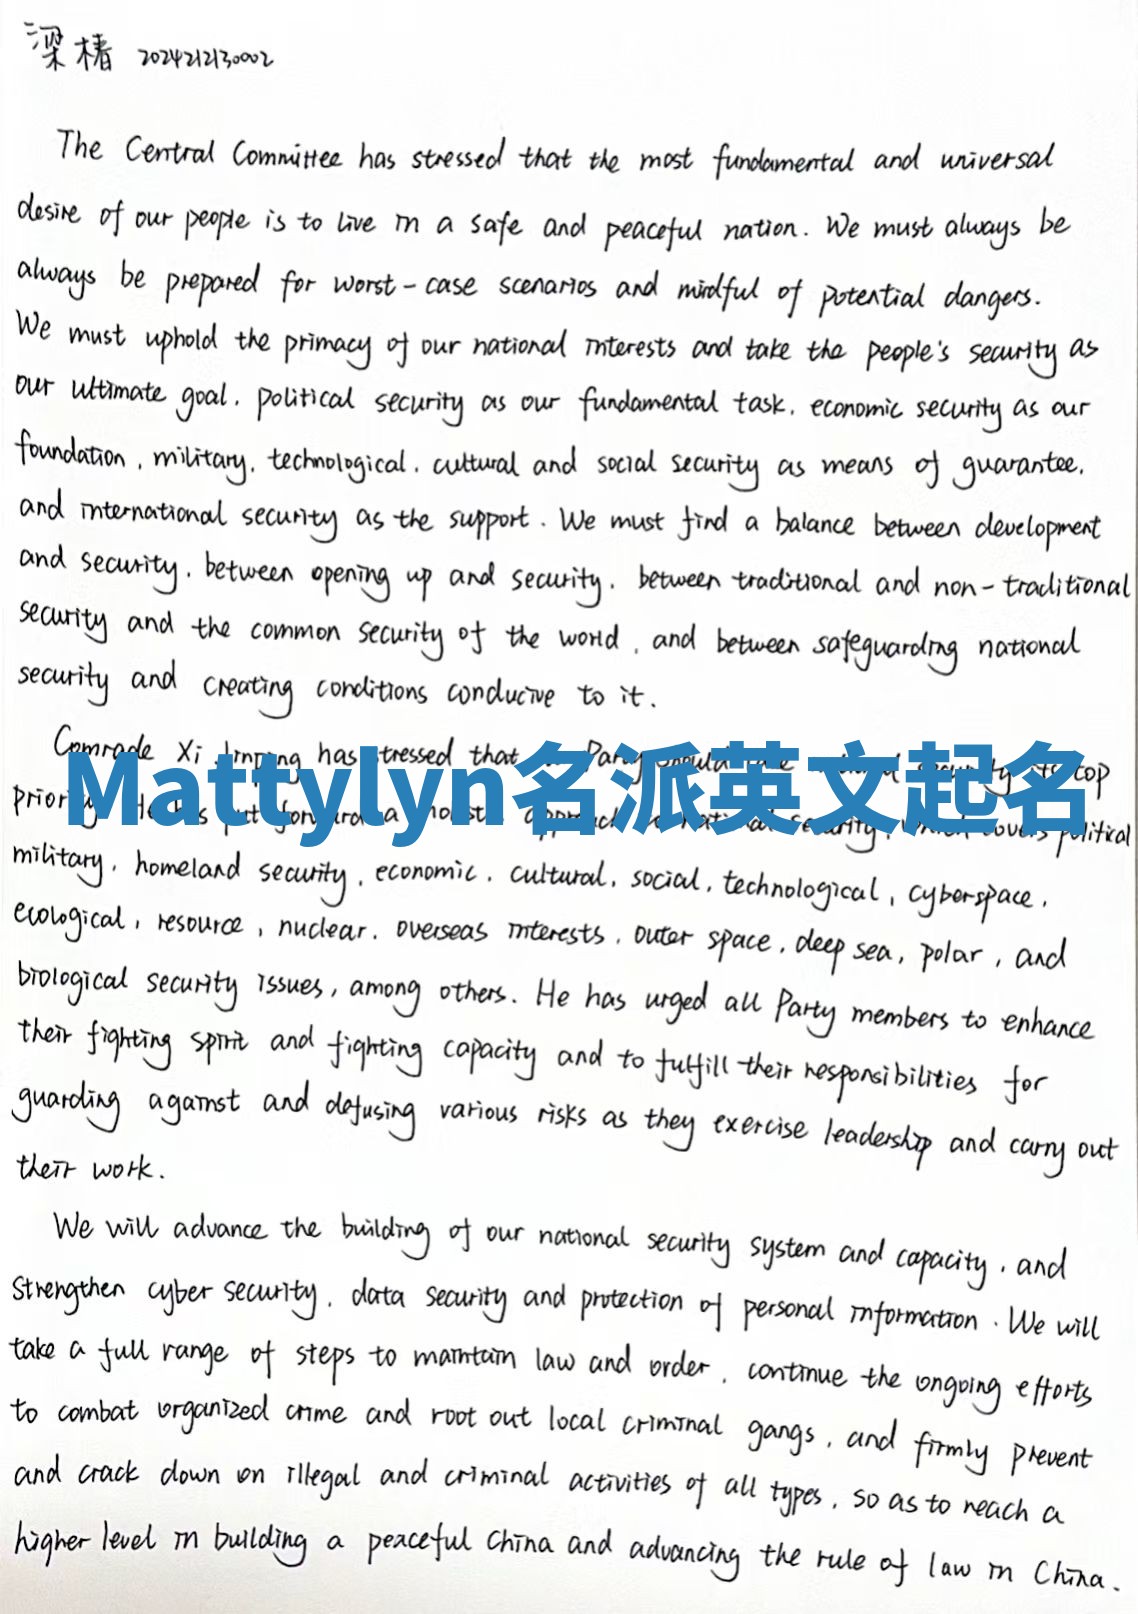 梁椿 2024212130002
The Central Committee has stressed that the most fundamental and universal
desire of our people is to live in a safe and peaceful nation. We must always be
always be prepared for worst-case scenarios and mindful of potential dangers.
We must uphold the primacy of our national interests and take the people's security as
our ultimate goal, political security as our fundamental task, economic security as our
foundation, military, technological, cultural and social security as means of guarantee,
and international security as the support. We must find a balance between development
and security, between opening up and security, between traditional and non-traditional
security and the common security of the world, and between safeguarding national
security and creating conditions conducive to it.
Comrade Xi Jinping has stressed that Party should security its top
Mattylyn名派英文起名
priority. He has put forward a holistic approach to national security, which covers political
military, homeland security, economic, cultural, social, technological, cyberspace,
ecological, resource, nuclear, overseas interests, outer space, deep sea, polar, and
biological security issues, among others. He has urged all Party members to enhance
their fighting spirit and fighting capacity and to fulfill their responsibilities for
guarding against and defusing various risks as they exercise leadership and carry out
their work.
We will advance the building of our national security system and capacity, and
strengthen cyber security, data security and protection of personal information. We will
take a full range of steps to maintain law and order, continue the ongoing efforts
to combat organized crime and root out local criminal gangs, and firmly prevent
and crack down on illegal and criminal activities of all types, so as to reach a
higher level in building a peaceful China and advancing the rule of law in China.